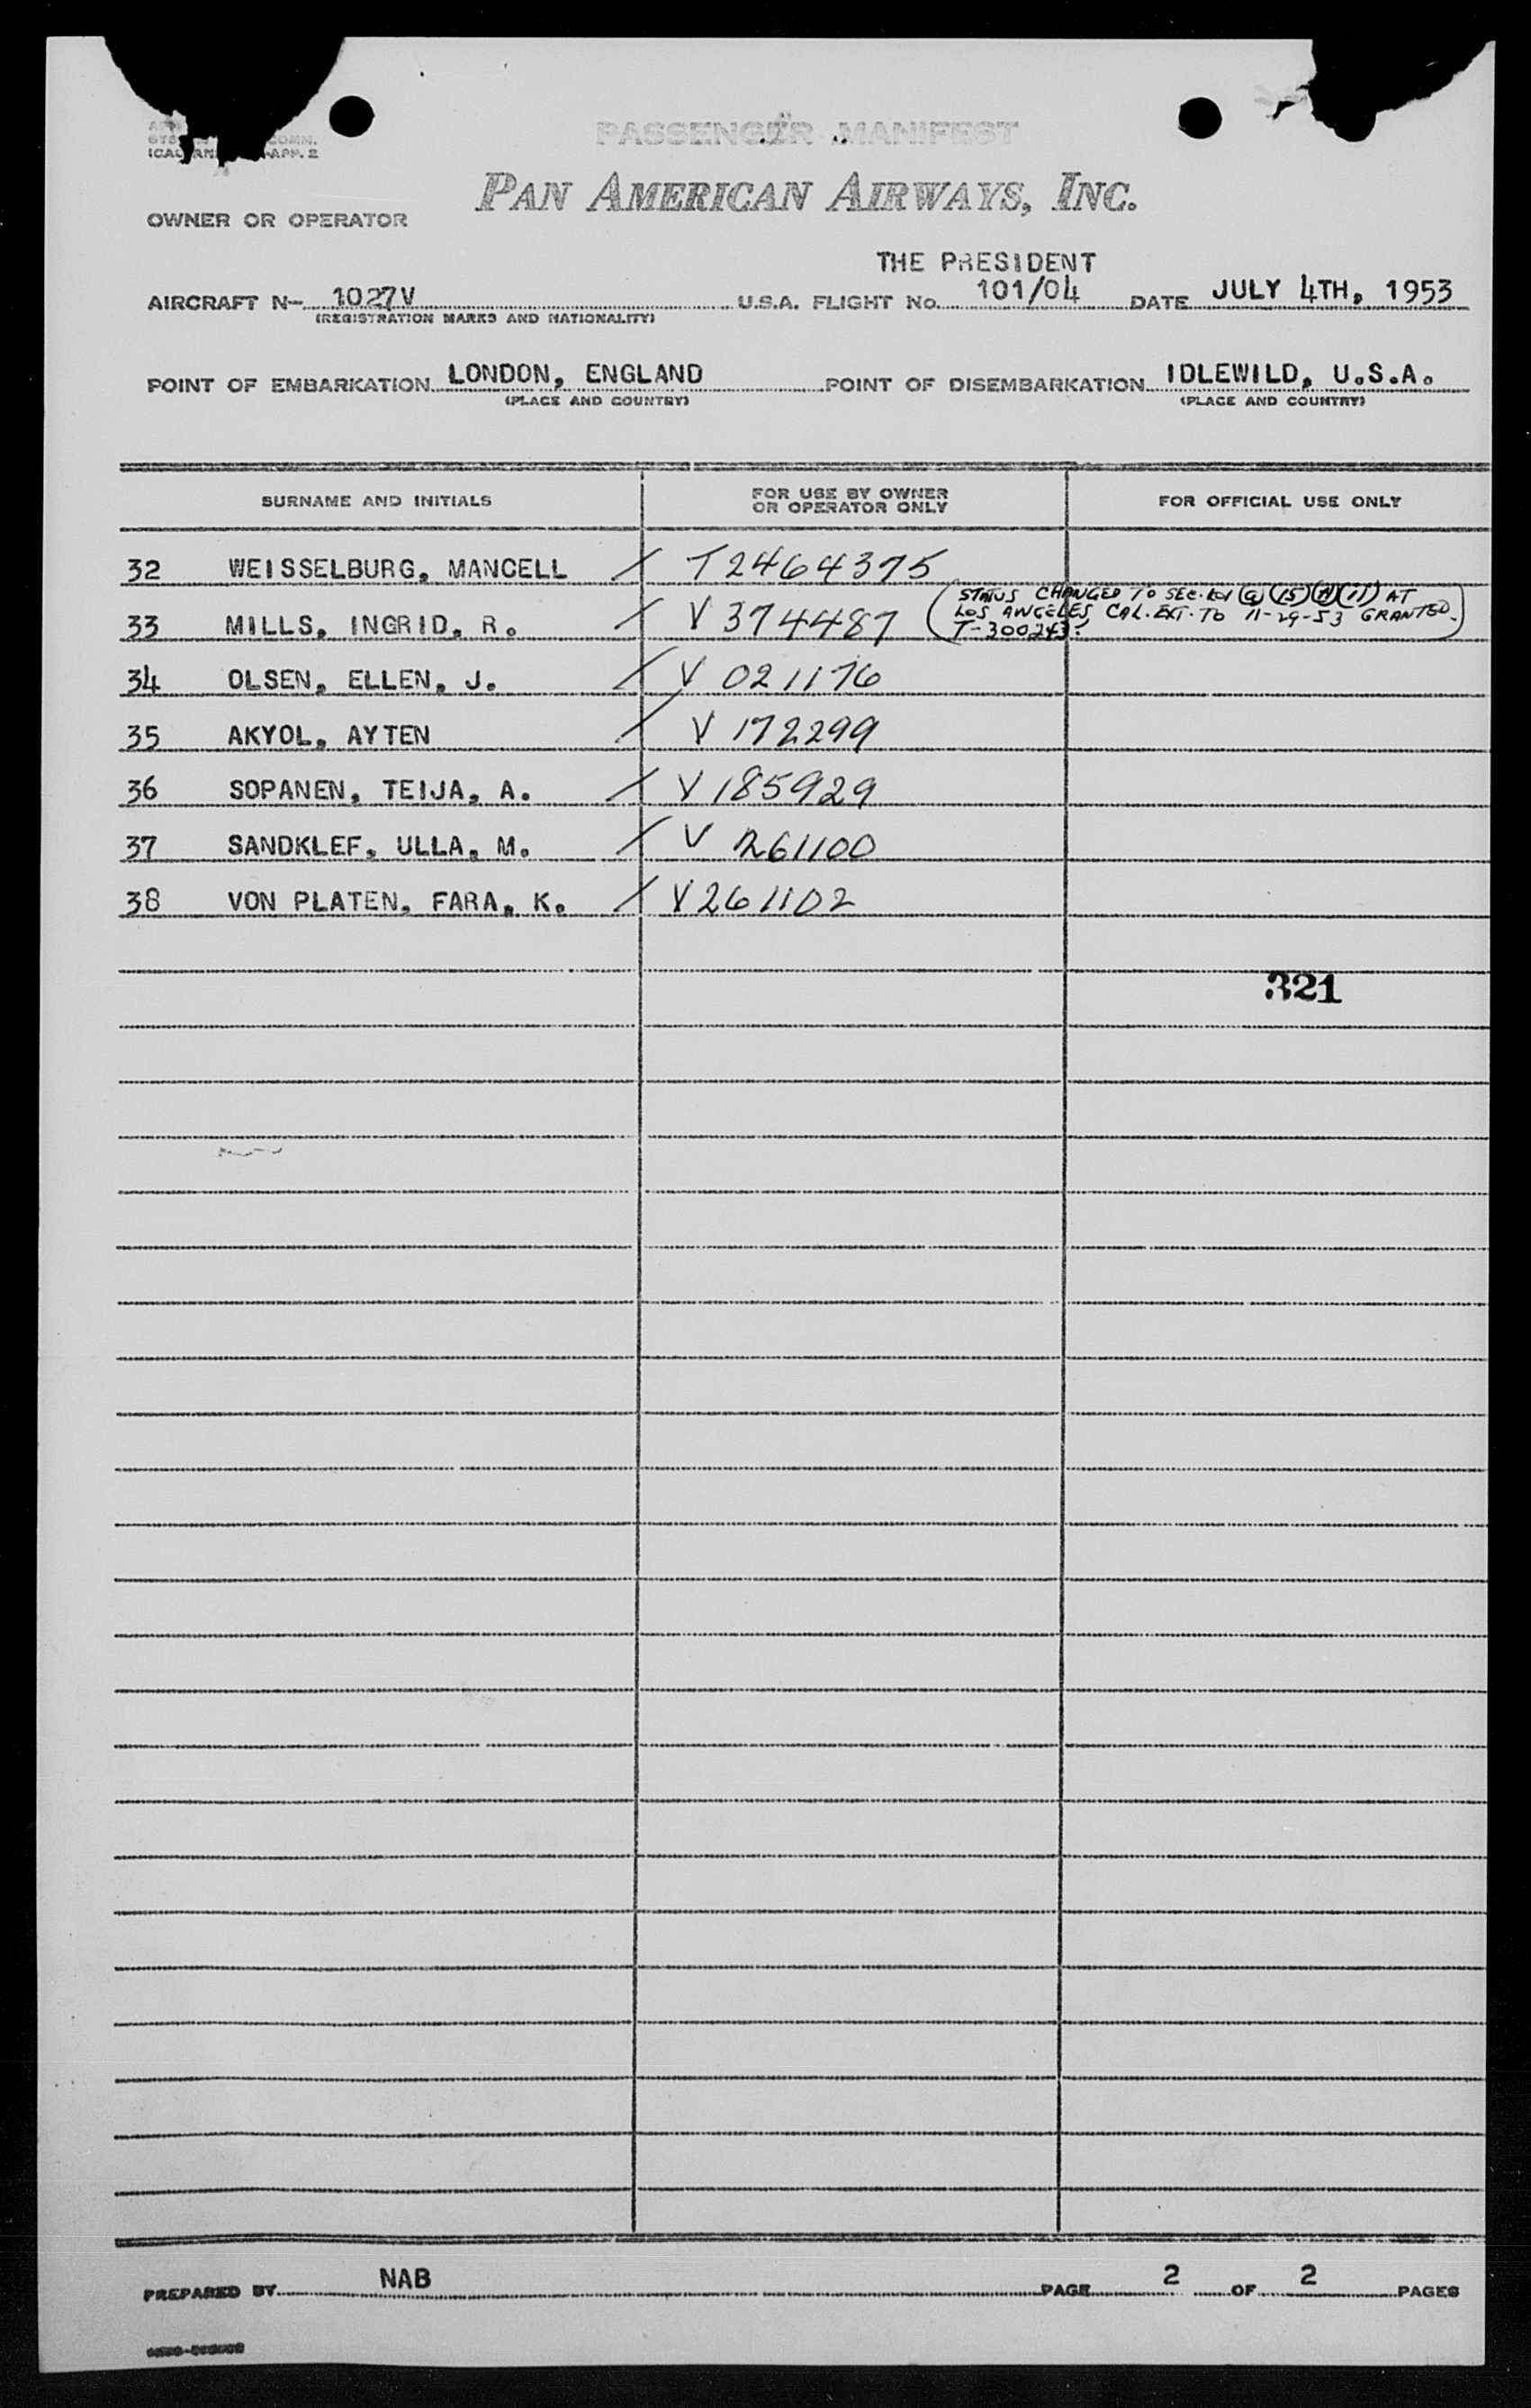 COMN.
ICAO ANNEX 9-APP. 2
PASSENGER MANIFEST
PAN AMERICAN AIRWAYS, INC.
OWNER OR OPERATOR
THE PRESIDENT
AIRCRAFT N- 1027V U.S.A. FLIGHT No. 101/04 DATE JULY 4TH, 1953
(REGISTRATION MARKS AND NATIONALITY)
POINT OF EMBARKATION LONDON, ENGLAND POINT OF DISEMBARKATION IDLEWILD, U.S.A.
(PLACE AND COUNTRY) (PLACE AND COUNTRY)
SURNAME AND INITIALS FOR USE BY OWNER OR OPERATOR ONLY FOR OFFICIAL USE ONLY
32 WEISSELBURG, MANCELL / T2464375
33 MILLS, INGRID, R. / V 374487
(STATUS CHANGED TO SEC. 101 (a) (15) (H) (ii) AT
LOS ANGELES, CAL. EXT. TO 11-29-53 GRANTED.)
T-300243.
34 OLSEN, ELLEN, J. / V 021176
35 AKYOL, AYTEN / V 172299
36 SOPANEN, TEIJA, A. / V 185929
37 SANDKLEF, ULLA, M. / V 261100
38 VON PLATEN, FARA, K. / V261102
321
PREPARED BY NAB PAGE 2 OF 2 PAGES